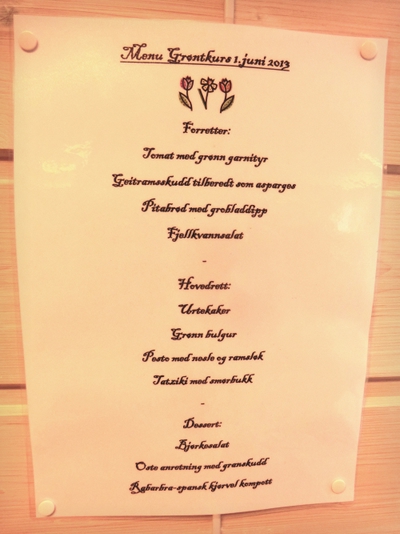 Menu Grøntkurs 1.juni 2013
Forretter:
Tomat med grønn garnityr
Geitramsskudd tilberedt som asparges
Pitabrød med grobladdipp
Fjellkvannsalat
-
Hovedrett:
Urtekaker
Grønn bulgur
Pesto med nesle og ramsløk
Tatziki med smørbukk
-
Dessert:
Bjørkesalat
Oste anretning med granskudd
Rabarbra-spansk kjørvel kompott